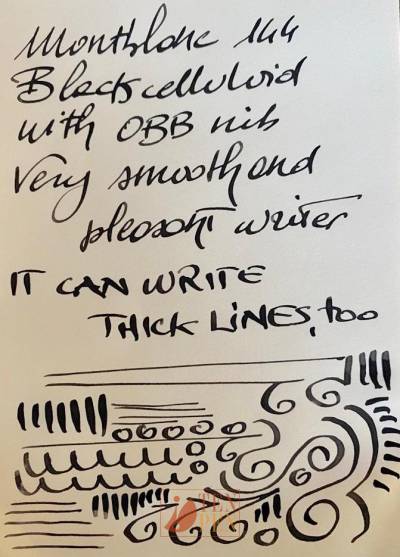 Montblanc 144
Black celluloid
with OBB nib
Very smooth and
pleasant writer
IT CAN WRITE
THICK LINES, too
TEN
PEN